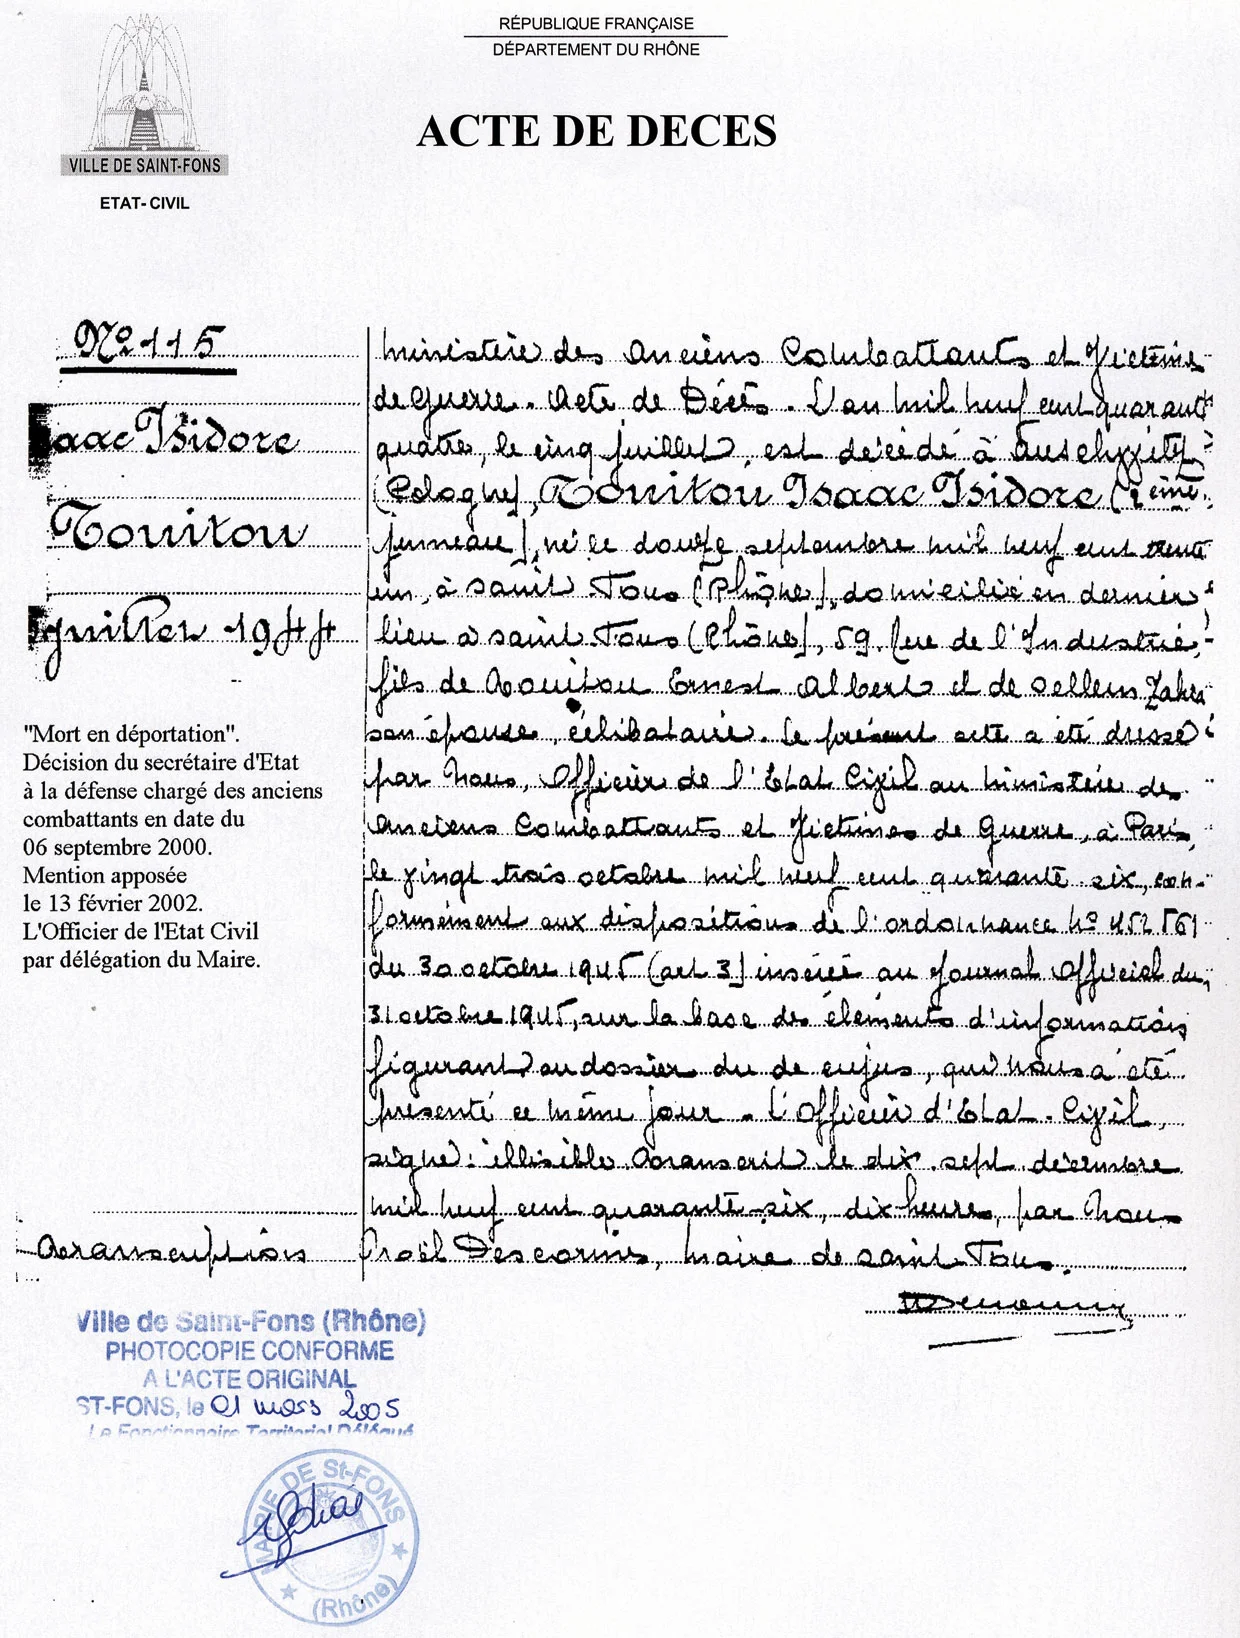 RÉPUBLIQUE FRANÇAISE
DÉPARTEMENT DU RHÔNE
VILLE DE SAINT-FONS
ETAT-CIVIL
ACTE DE DECES
Nº 115
saac Isidore
Touitou
juillet 1944
"Mort en déportation".
Décision du secrétaire d'Etat
à la défense chargé des anciens
combattants en date du
06 septembre 2000.
Mention apposée
le 13 février 2002.
L'Officier de l'Etat Civil
par délégation du Maire.
Transcription
Ministère des Anciens Combattants et Victime
de Guerre. Acte de Décès. L'an mil neuf cent quarant
quatre, le cinq juillet, est décédé à Auschwitz
(Pologne), Touitou Isaac Isidore (2ème
jumeau), né le douze septembre mil neuf cent trente
un, à Saint Fons (Rhône), domicilié en dernier
lieu à Saint Fons (Rhône), 59 Rue de l'Industrie,
fils de Touitou Ernest Albert et de Sellem Zahra
son épouse, célibataire. Le présent acte a été dressé
par Nous, Officier de l'Etat Civil au Ministère des
Anciens Combattants et Victimes de Guerre, à Paris,
le vingt trois octobre mil neuf cent quarante six, con-
formément aux dispositions de l'ordonnance nº 452561
du 30 octobre 1945 (art 3) inséré au Journal Officiel du
31 octobre 1945, sur la base des éléments d'information
figurant au dossier du de cujus, qui nous a été
présenté ce même jour - L'Officier d'Etat-Civil,
signé : illisible. Transcrit le dix sept décembre
mil neuf cent quarante-six, dix heures, par Nous
Noël Descormes, maire de Saint Fons.
Ville de Saint-Fons (Rhône)
PHOTOCOPIE CONFORME
A L'ACTE ORIGINAL
ST-FONS, le 01 mars 2005
Le Fonctionnaire Territorial Délégué
MAIRIE DE St-FONS
(Rhône)